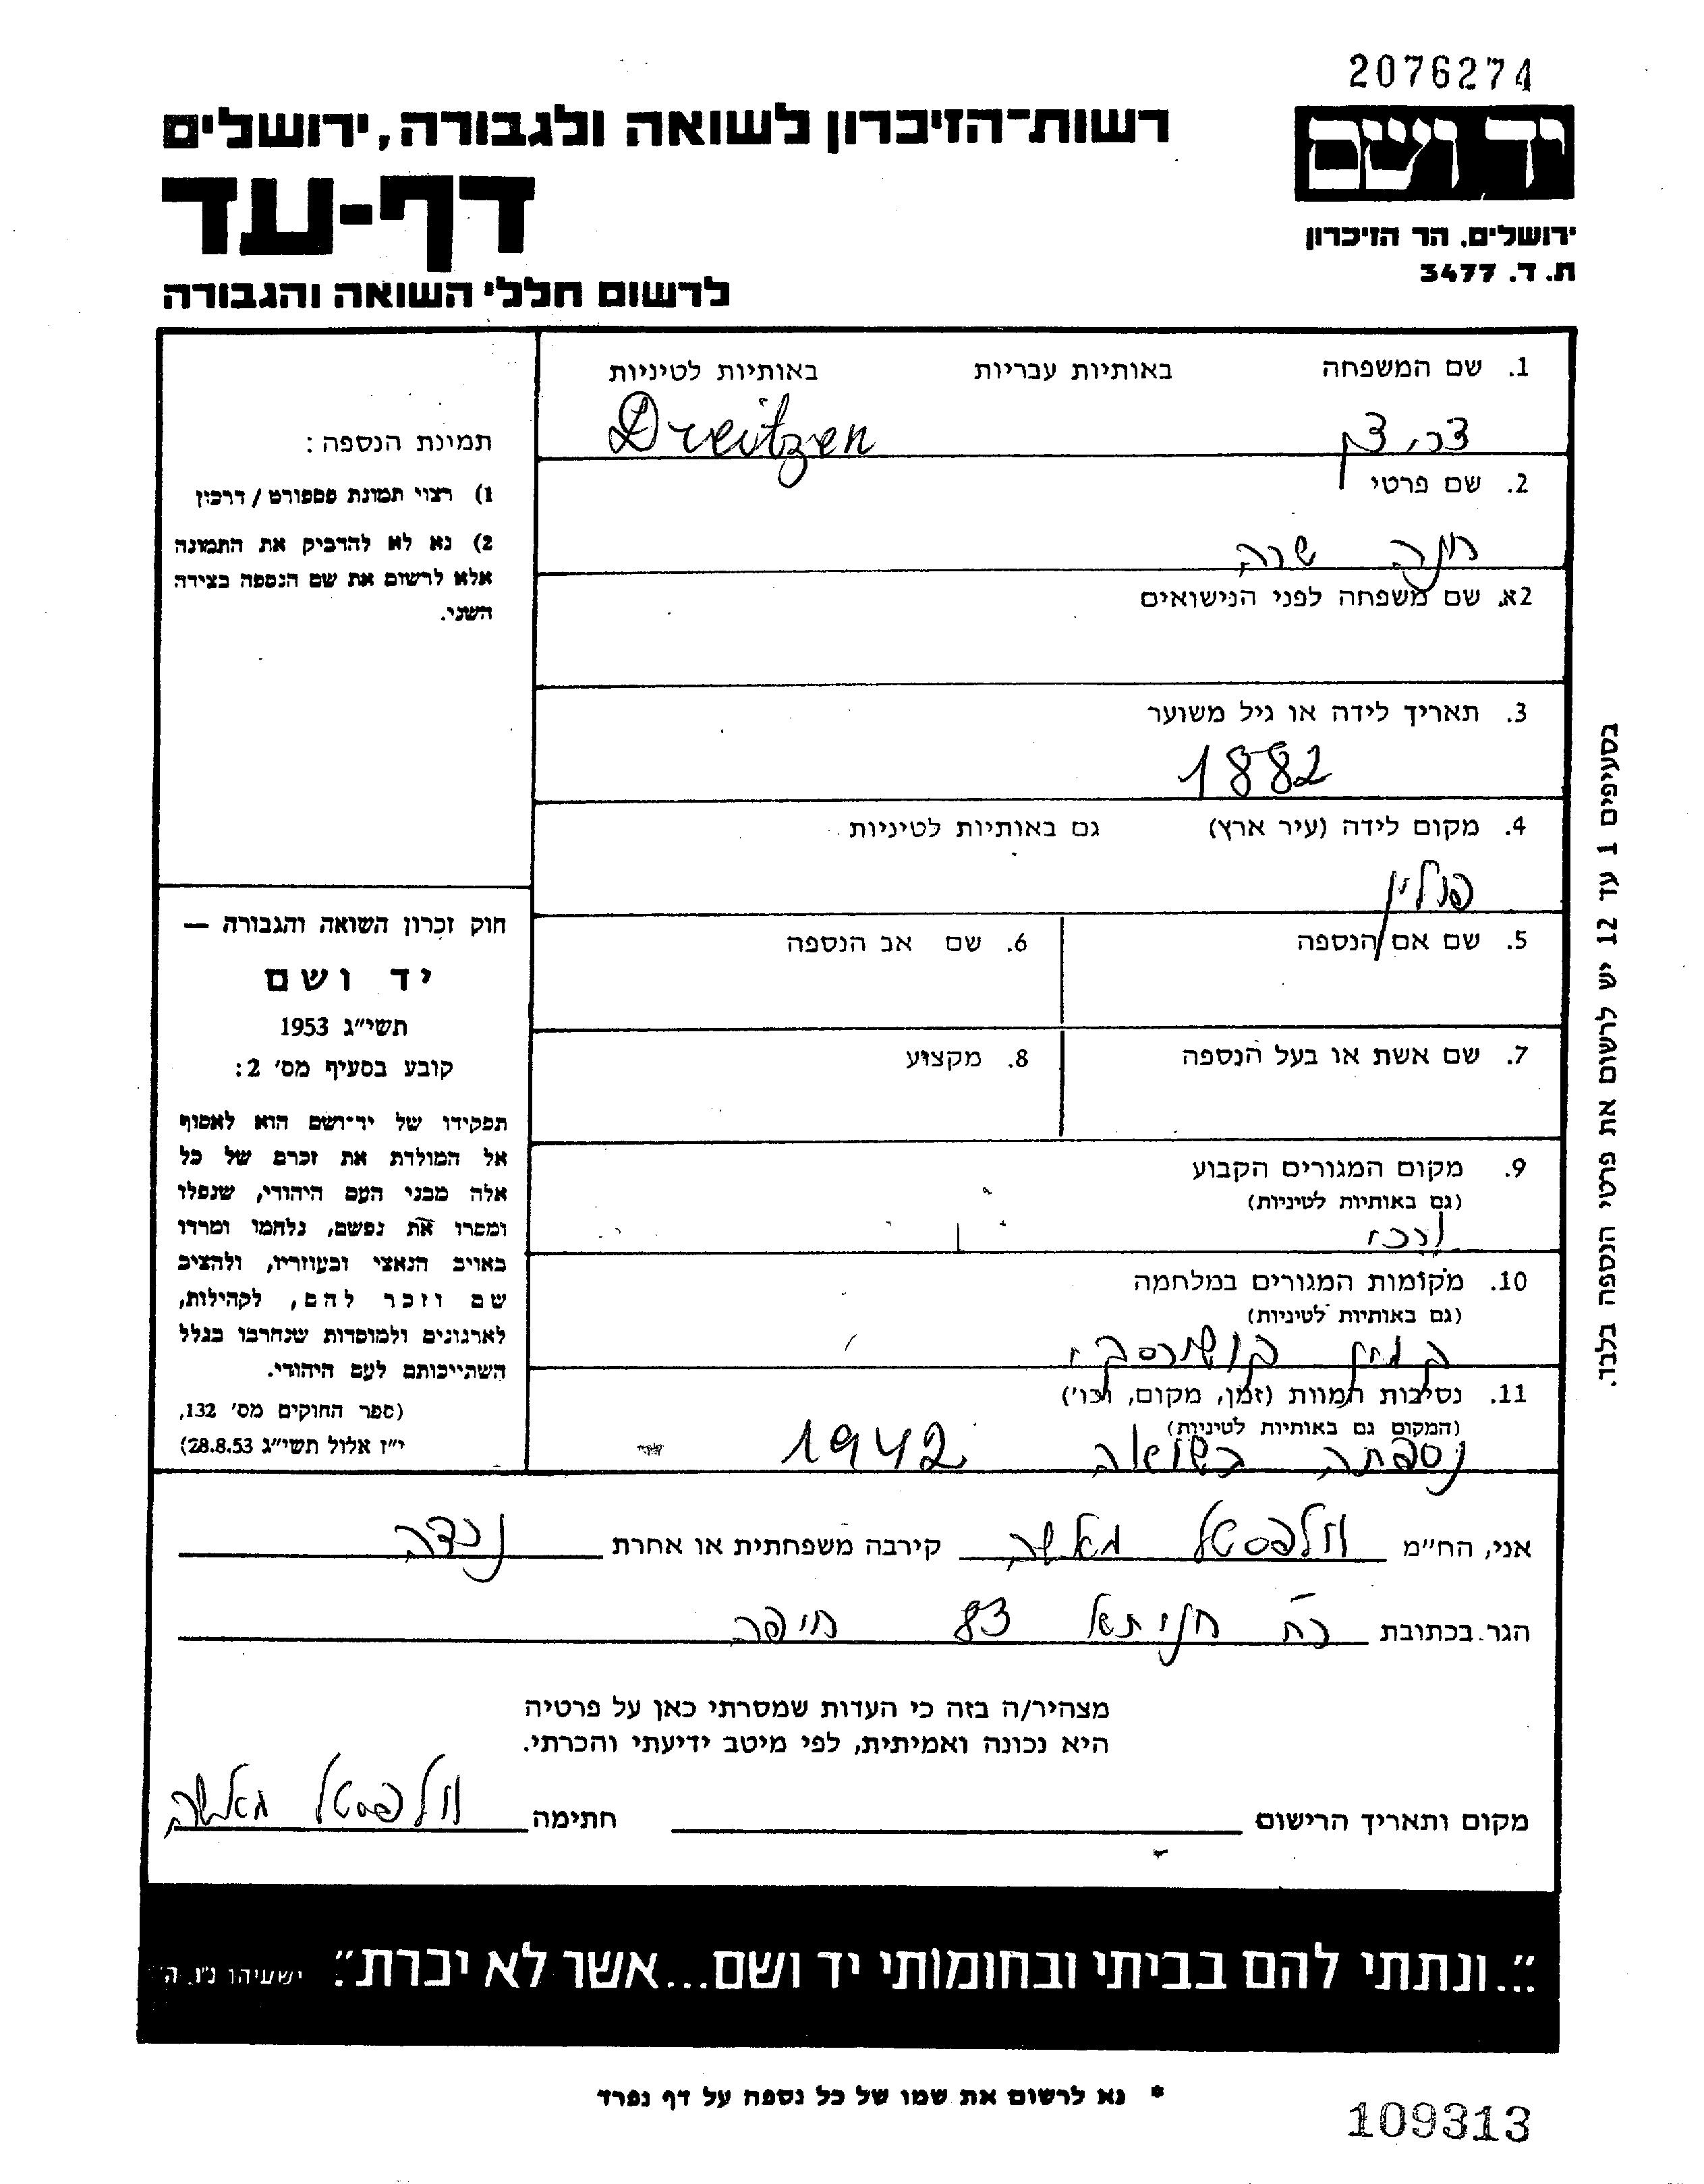 2076274
יד ושם
ירושלים. הר הזיכרון
ת. ד. 3477
רשות-הזיכרון לשואה ולגבורה, ירושלים
דף-עד
לרשום חללי השואה והגבורה
1. שם המשפחה באותיות עבריות באותיות לטיניות
Dreitzen
2. שם פרטי
חנה שרה
2א. שם משפחה לפני הנישואים
3. תאריך לידה או גיל משוער
1882
4. מקום לידה (עיר ארץ) גם באותיות לטיניות
פולין
5. שם אם הנספה 6. שם אב הנספה
7. שם אשת או בעל הנספה 8. מקצוע
9. מקום המגורים הקבוע
(גם באותיות לטיניות)
10. מקומות המגורים במלחמה
(גם באותיות לטיניות)
11. נסיבות המוות (זמן, מקום, וכו')
(המקום גם באותיות לטיניות)
נספתה בשואה 1942
תמונת הנספה:
1) רצוי תמונת פספורט / דרכון
2) נא לא להדביק את התמונה
אלא לרשום את שם הנספה בצידה
השני.
חוק זכרון השואה והגבורה —
יד ושם
תשי"ג 1953
קובע בסעיף מס' 2:
תפקידו של יד-ושם הוא לאסוף
אל המולדת את זכרם של כל
אלה מבני העם היהודי, שנפלו
ומסרו את נפשם, נלחמו ומרדו
באויב הנאצי ובעוזריו, ולהציב
שם וזכר להם, לקהילות,
לארגונים ולמוסדות שנחרבו בגלל
השתייכותם לעם היהודי.
(ספר החוקים מס' 132,
י"ז אלול תשי"ג 28.8.53)
בסעיפים 1 עד 12 יש לרשום את פרטי הנספה בלבד.
אני, הח"מ קירבה משפחתית או אחרת נכדה
הגר בכתובת רח חניתא 83 חיפה
מצהיר/ה בזה כי העדות שמסרתי כאן על פרטיה
היא נכונה ואמיתית, לפי מיטב ידיעתי והכרתי.
מקום ותאריך הרישום חתימה
"...ונתתי להם בביתי ובחומותי יד ושם...אשר לא יכרת". ישעיהו נ"ו, ה'
* נא לרשום את שמו של כל נספה על דף נפרד
109313